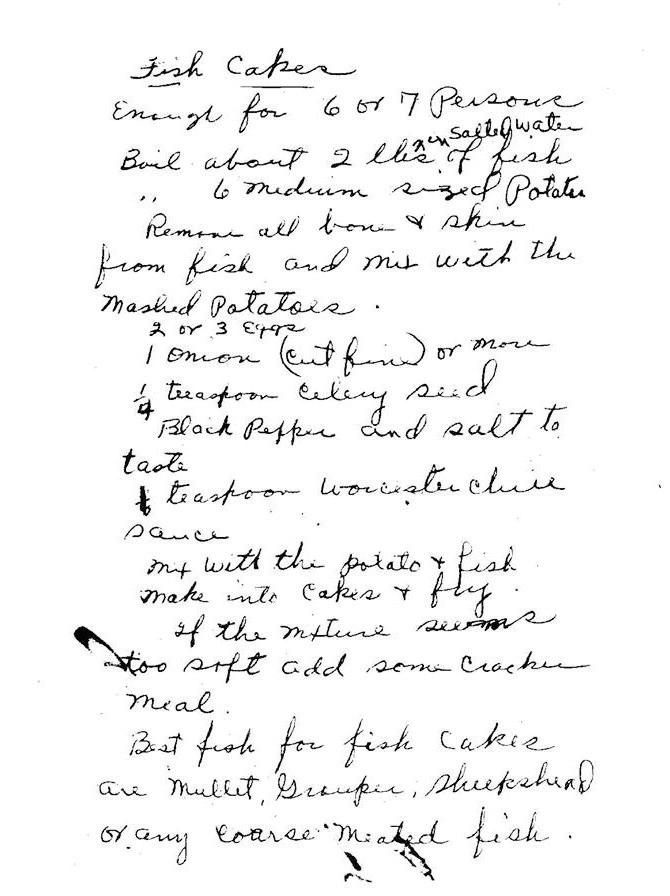 Fish Cakes
Enough for 6 or 7 Persons
in Salted Water
Boil about 2 lbs of fish
" 6 medium sized Potatoes
Remove all bone & skin
from fish and mix with the
Mashed Potatoes.
2 or 3 Eggs
1 onion (cut fine) or more
1/4 teaspoon celery seed
Black Pepper and salt to
taste
teaspoon Worcestershire
sauce
mix with the potato & fish
make into cakes & fry.
If the mixture seems
too soft add some cracker
meal.
Best fish for fish cakes
are Mullet, Grouper, Sheepshead
or any coarse Meated fish.